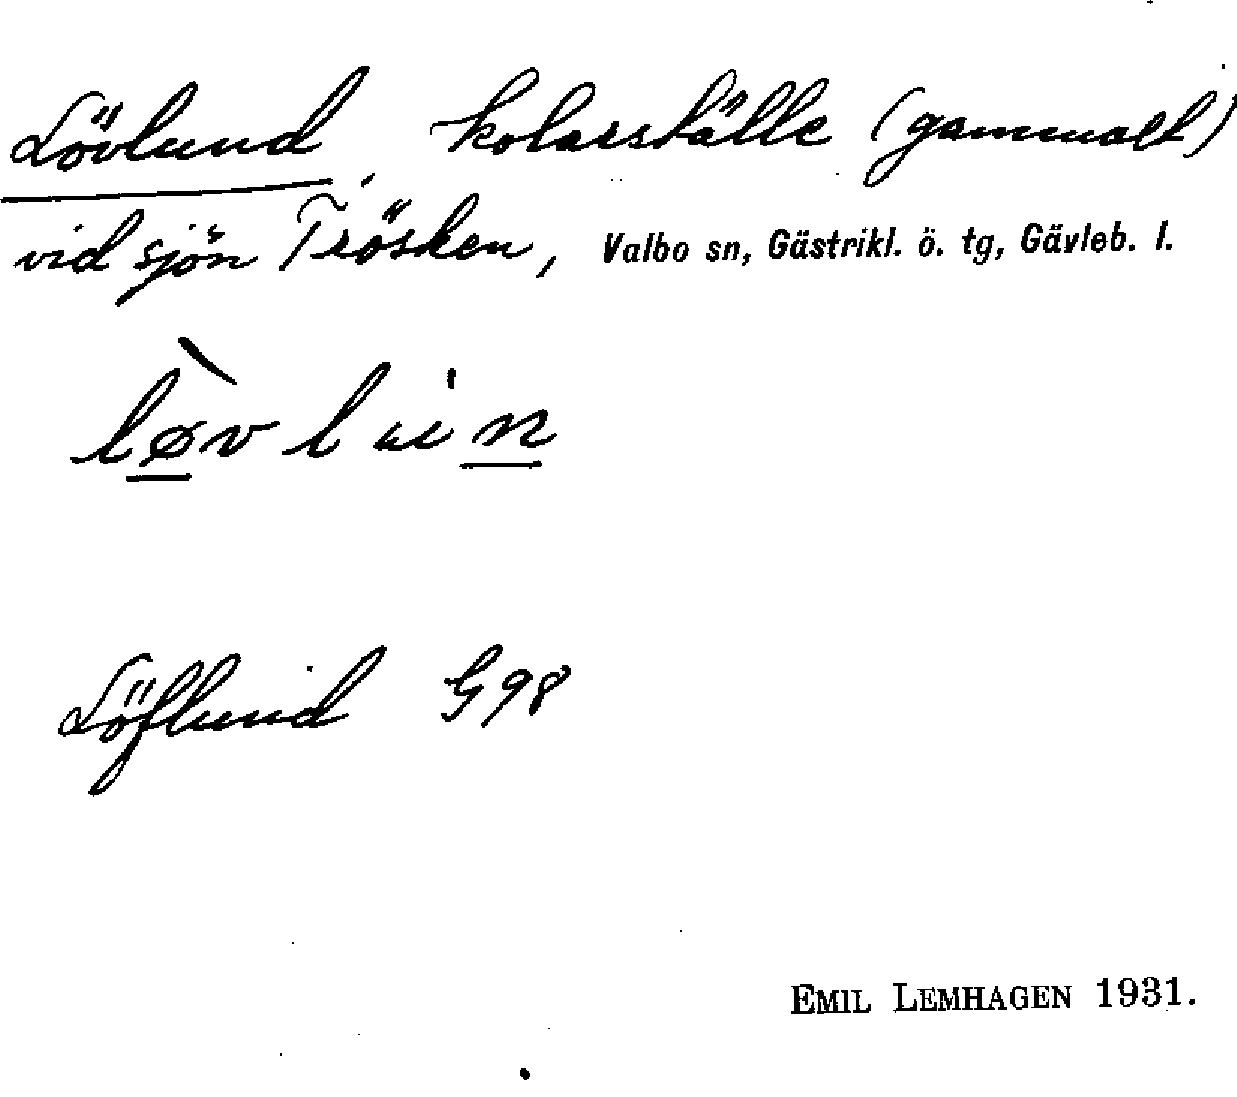 Lövlund, kolarställe (gammalt)
vid sjön Trösken, Valbo sn, Gästrikl. ö. tg, Gävleb. l.
Löflund G98
EMIL LEMHAGEN 1931.